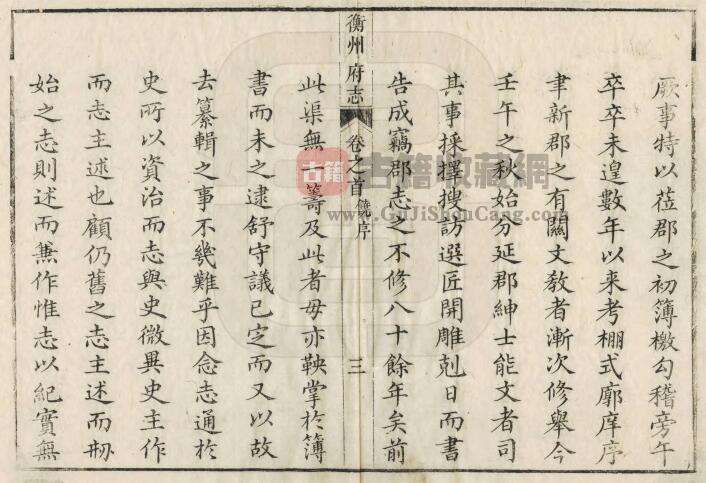 厥事特以莅郡之初簿檄勾稽旁午
卒卒未遑數年以來考棚式廓庠序
聿新郡之有關文教者漸次修舉今
壬午之秋始分延郡紳士能文者司
其事採擇搜訪選匠開雕剋日而書
告成竊郡志之不修八十餘年矣前
衡州府志 卷之首 饒序 三
此渠無一籌及此者毋亦鞅掌於簿
書而未之逮舒守議已定而又以故
去纂輯之事不幾難乎因念志通於
史所以資治而志與史微異史主作
而志主述也顧仍舊之志主述而刱
始之志則述而兼作惟志以紀實無
古籍
古籍收藏網
www.GuJiShouCang.com